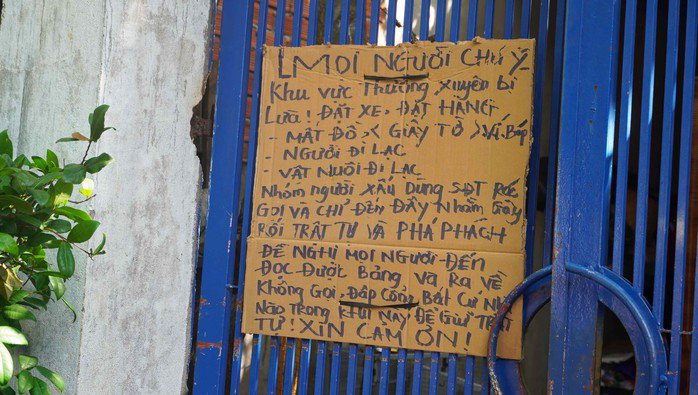 MỌI NGƯỜI CHÚ Ý
Khu vực Thường xuyên bị
Lừa! ĐẶT XE, ĐẶT HÀNG
- MẤT ĐỒ < GIẤY TỜ > Ví, Bóp
- NGƯỜI ĐI LẠC
VẬT NUÔI ĐI LẠC
Nhóm người xấu Dùng SĐT RÁC
GỌI VÀ CHỈ ĐẾN ĐÂY Nhằm Gây
RỐI TRẬT TỰ VÀ PHÁ PHÁCH
ĐỀ NGHỊ MỌI NGƯỜI ĐẾN
ĐỌC ĐƯỢC BẢNG VÀ RA VỀ
KHÔNG GỌI ĐẬP CỔNG BẤT CỨ Nhà
NÀO TRONG KHU NÀY ĐỂ GIỮ TRẬT
TỰ! XIN CẢM ƠN!